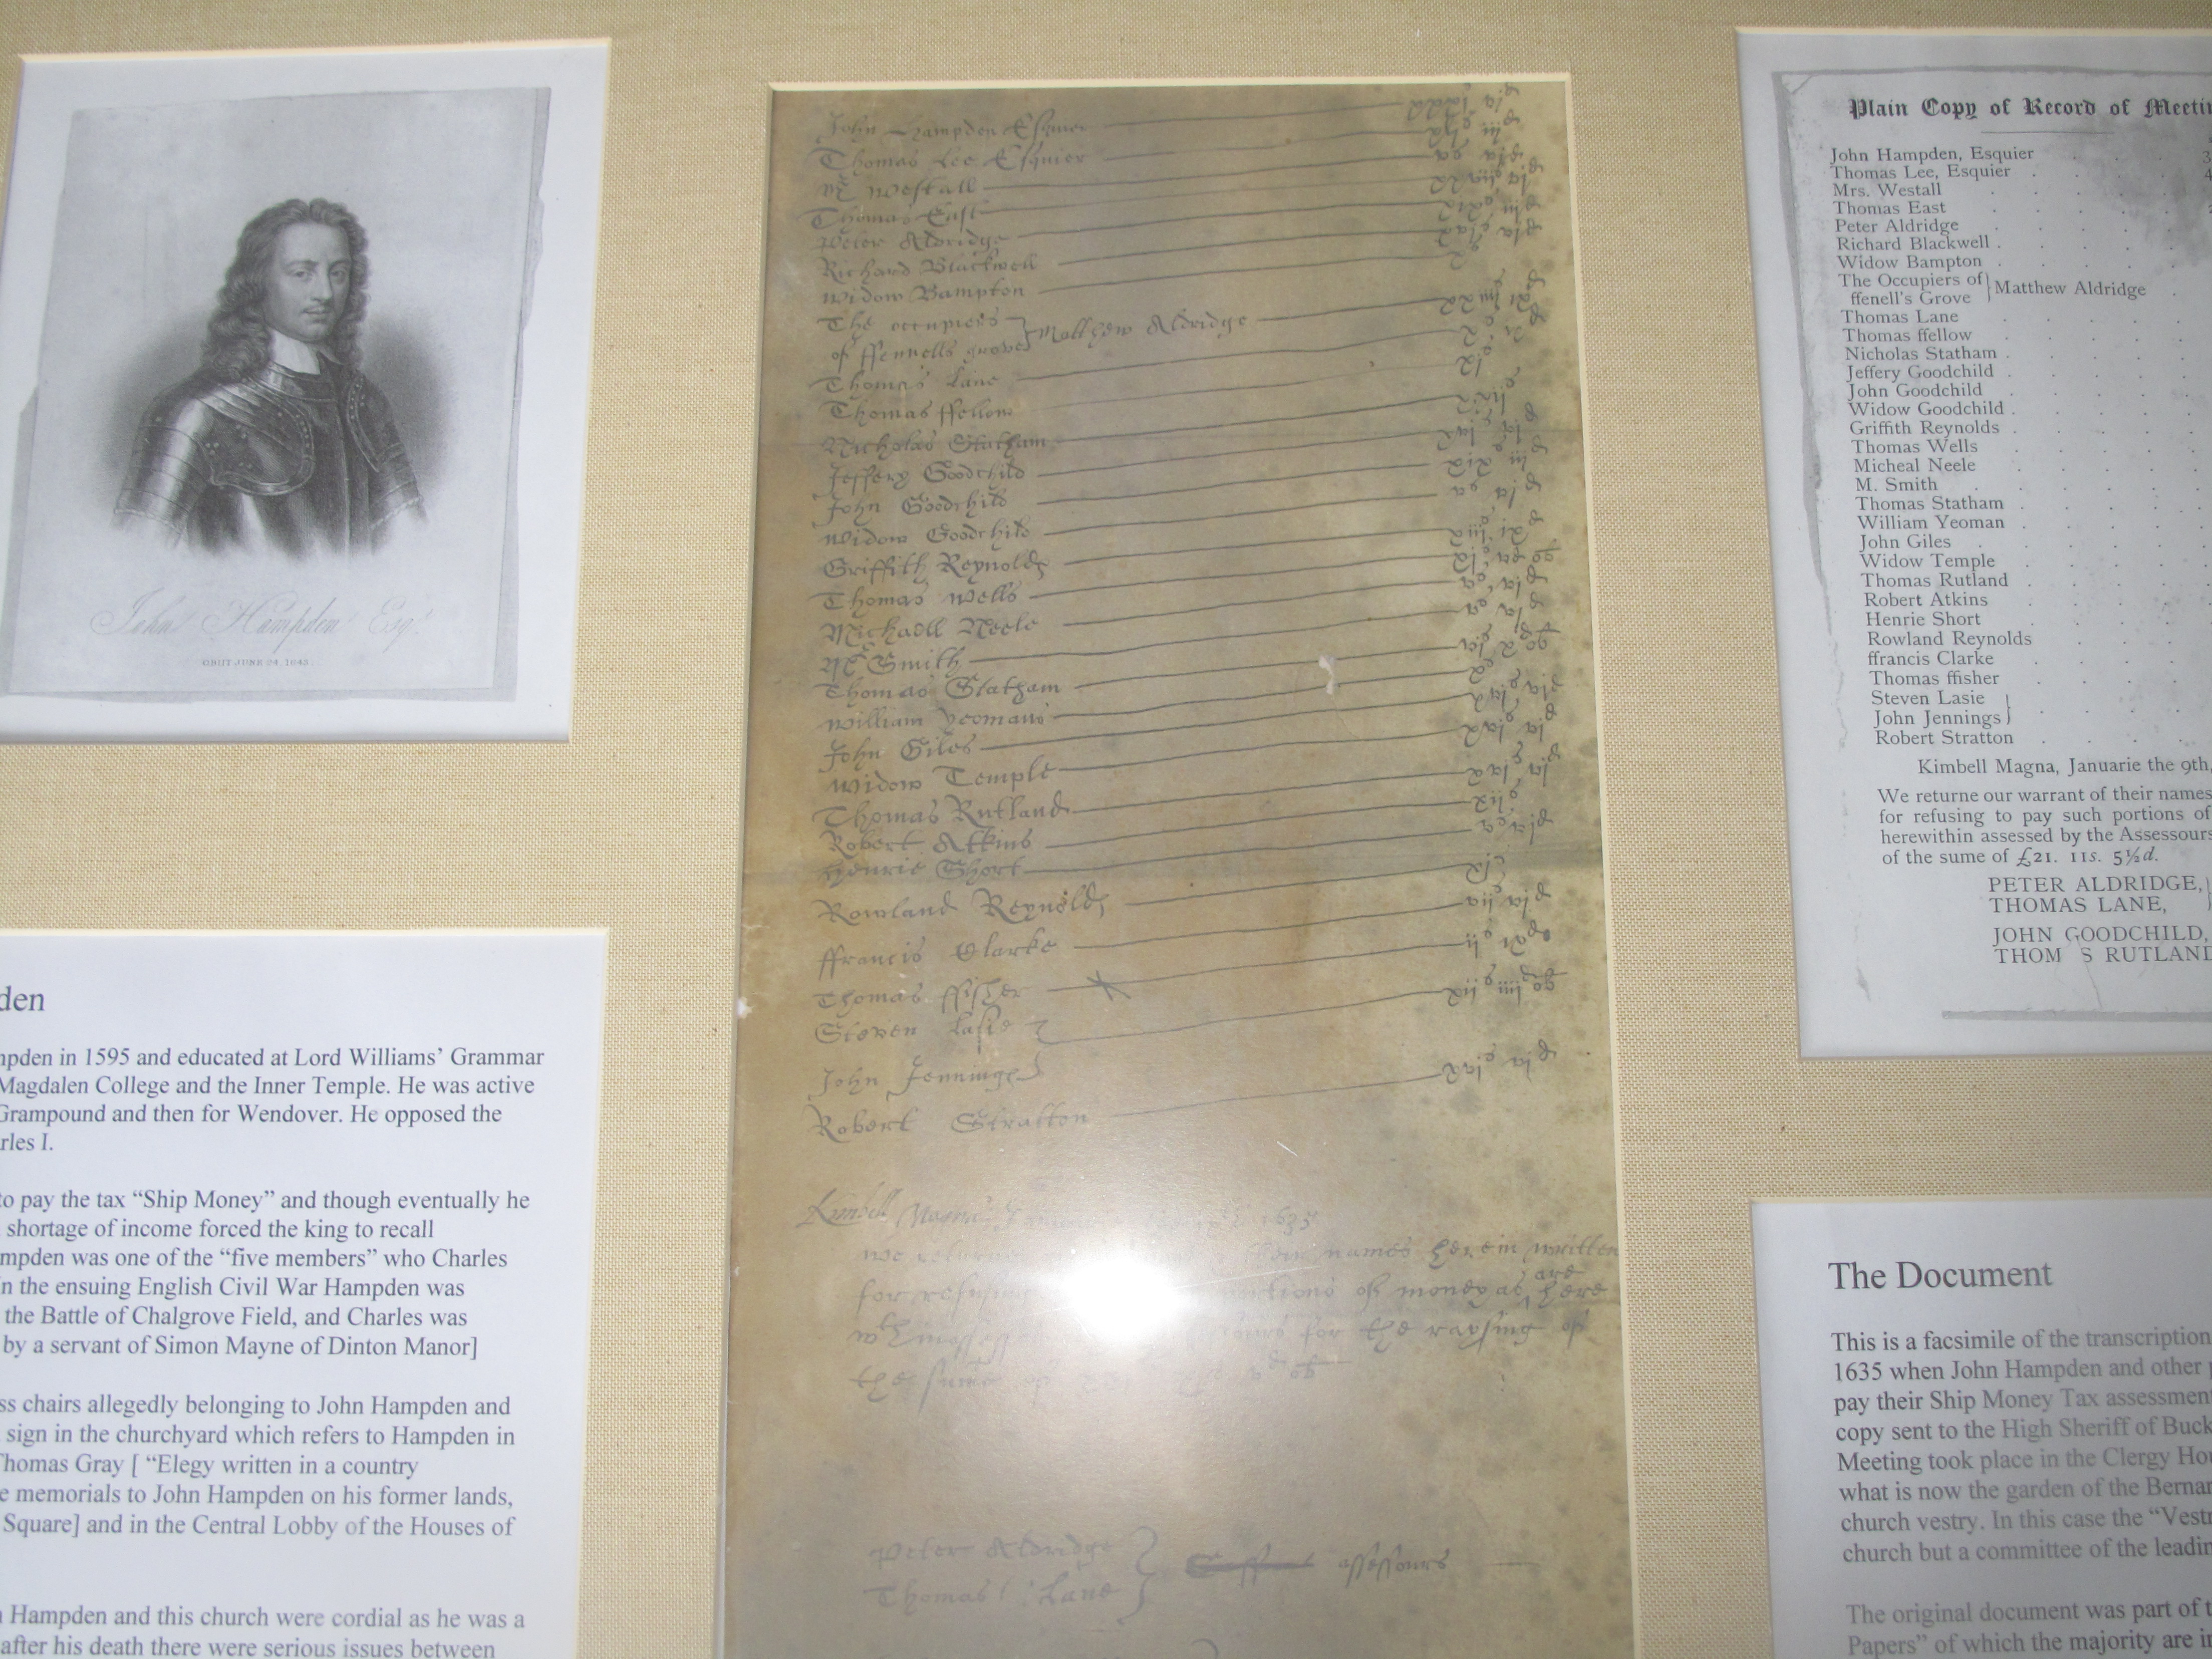 John Hampden Esq.
OBIIT JUNE 24. 1643.
den
mpden in 1595 and educated at Lord Williams’ Grammar
Magdalen College and the Inner Temple. He was active
Grampound and then for Wendover. He opposed the
rles I.
to pay the tax “Ship Money” and though eventually he
shortage of income forced the king to recall
mpden was one of the “five members” who Charles
n the ensuing English Civil War Hampden was
the Battle of Chalgrove Field, and Charles was
by a servant of Simon Mayne of Dinton Manor]
ss chairs allegedly belonging to John Hampden and
sign in the churchyard which refers to Hampden in
Thomas Gray [ “Elegy written in a country
e memorials to John Hampden on his former lands,
Square] and in the Central Lobby of the Houses of
Hampden and this church were cordial as he was a
after his death there were serious issues between
John Hampden Esquier
Thomas Lee Esquier
Westall
Thomas East
Peter Aldridge
Richard Blackwell
Widow Bampton
The occupiers
of ffennells grove Matthew Aldridge
Thomas Lane
Thomas ffellow
Nicholas Statham
Jeffery Goodchild
John Goodchild
Widow Goodchild
Griffith Reynolds
Thomas Wells
Michaell Neele
Smith
Thomas Statham
William Yeomans
John Giles
Widow Temple
Thomas Rutland
Robert Atkins
Henrie Short
Rowland Reynolds
ffrancis Clarke
Thomas ffisher
Steven Lasie
John Jennings
Robert Stratton
Kimbell Magna 1635
we returne their names herein written
for refusing portions of money as are here
for the raysing of
the sume of
Peter Aldridge
Thomas Lane assessours
Plain Copy of Record of Meetin
John Hampden, Esquier 3
Thomas Lee, Esquier 4
Mrs. Westall
Thomas East
Peter Aldridge
Richard Blackwell
Widow Bampton
The Occupiers of
ffenell's Grove Matthew Aldridge
Thomas Lane
Thomas ffellow
Nicholas Statham
Jeffery Goodchild
John Goodchild
Widow Goodchild
Griffith Reynolds
Thomas Wells
Micheal Neele
M. Smith
Thomas Statham
William Yeoman
John Giles
Widow Temple
Thomas Rutland
Robert Atkins
Henrie Short
Rowland Reynolds
ffrancis Clarke
Thomas ffisher
Steven Lasie
John Jennings
Robert Stratton
Kimbell Magna, Januarie the 9th,
We returne our warrant of their names
for refusing to pay such portions of
herewithin assessed by the Assessours
of the sume of £21. 11s. 5½d.
PETER ALDRIDGE,
THOMAS LANE,
JOHN GOODCHILD,
THOM S RUTLAND
The Document
This is a facsimile of the transcription
1635 when John Hampden and other p
pay their Ship Money Tax assessmen
copy sent to the High Sheriff of Buck
Meeting took place in the Clergy Hou
what is now the garden of the Bernar
church vestry. In this case the “Vestr
church but a committee of the leadin
The original document was part of t
Papers” of which the majority are in